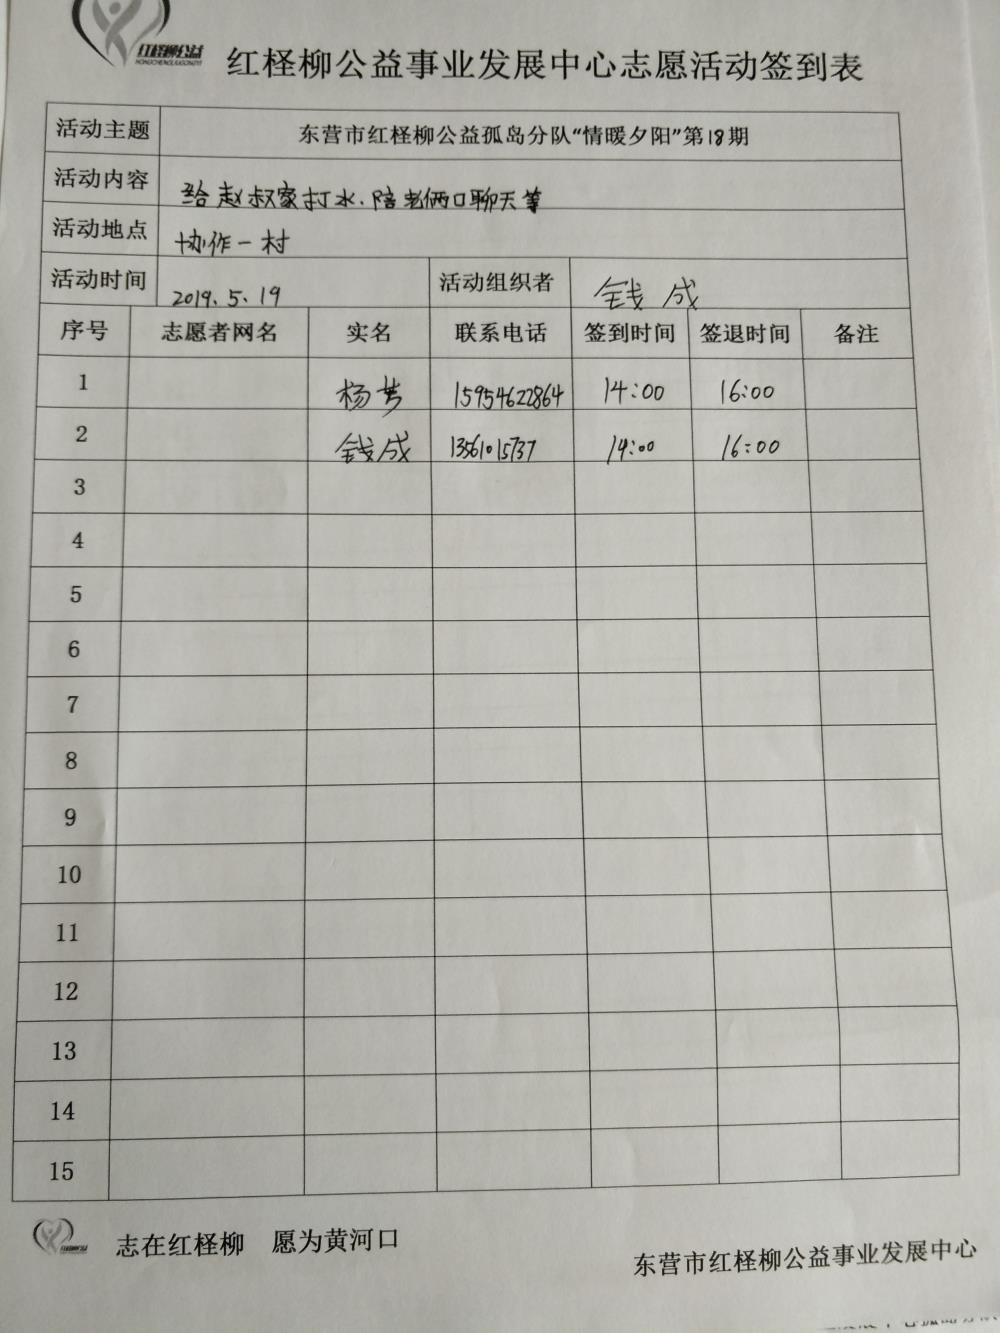 红柽柳公益
红柽柳公益事业发展中心志愿活动签到表
活动主题 东营市红柽柳公益孤岛分队“情暖夕阳”第18期
活动内容 给赵叔家打水.陪老俩口聊天等
活动地点 协作一村
活动时间 2019.5.19 活动组织者 钱成
序号 志愿者网名 实名 联系电话 签到时间 签退时间 备注
1 杨芳 15954622864 14:00 16:00
2 钱成 13561015737 14:00 16:00
3
4
5
6
7
8
9
10
11
12
13
14
15
志在红柽柳 愿为黄河口
东营市红柽柳公益事业发展中心